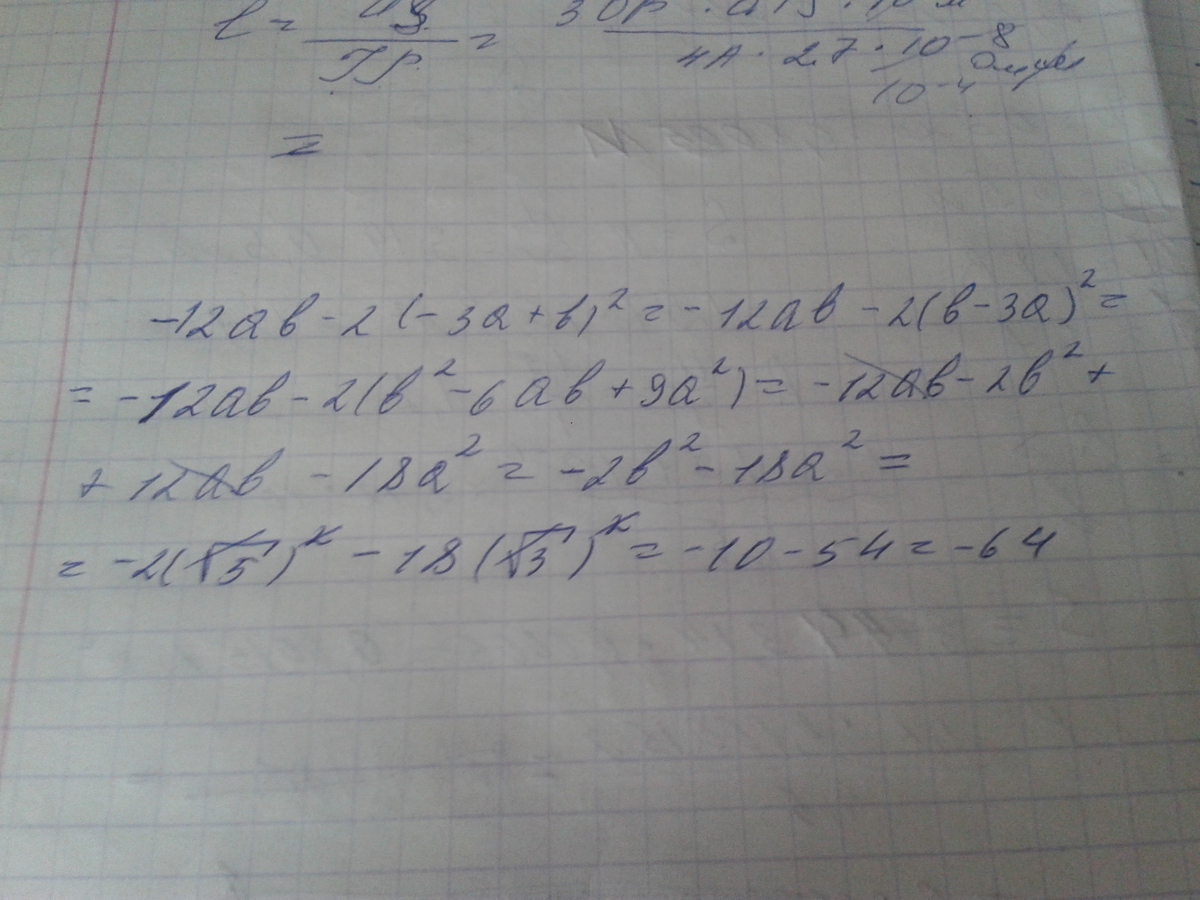 l = =
4A · 2,7 · 10⁻⁸
10⁻⁴
=
-12ab - 2(-3a+b)² = -12ab - 2(b-3a)² =
= -12ab - 2(b² - 6ab + 9a²) = -12ab - 2b² +
+ 12ab - 18a² = -2b² - 18a² =
= -2(√5)² - 18(√3)² = -10 - 54 = -64